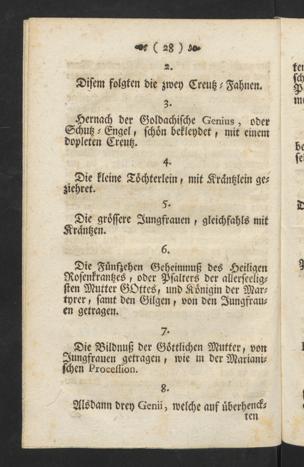 ( 28 )
2.
Disem folgten die zwey Creutz-Fahnen.
3.
Hernach der Goldachische Genius, oder
Schutz-Engel, schön bekleydet, mit einem
dopleten Creutz.
4.
Die kleine Töchterlein, mit Kräntzlein ge-
ziehret.
5.
Die grössere Jungfrauen, gleichfahls mit
Kräntzen.
6.
Die Fünfzehen Geheimnuß des Heiligen
Rosenkrantzes, oder Psalters der allerseelig-
sten Mutter GOttes, und Königin der Mar-
tyrer, samt den Gilgen, von den Jungfrau-
en getragen.
7.
Die Bildnuß der Göttlichen Mutter, von
Jungfrauen getragen, wie in der Mariani-
schen Procession.
8.
Alsdann drey Genii, welche auf überhenck-
ten